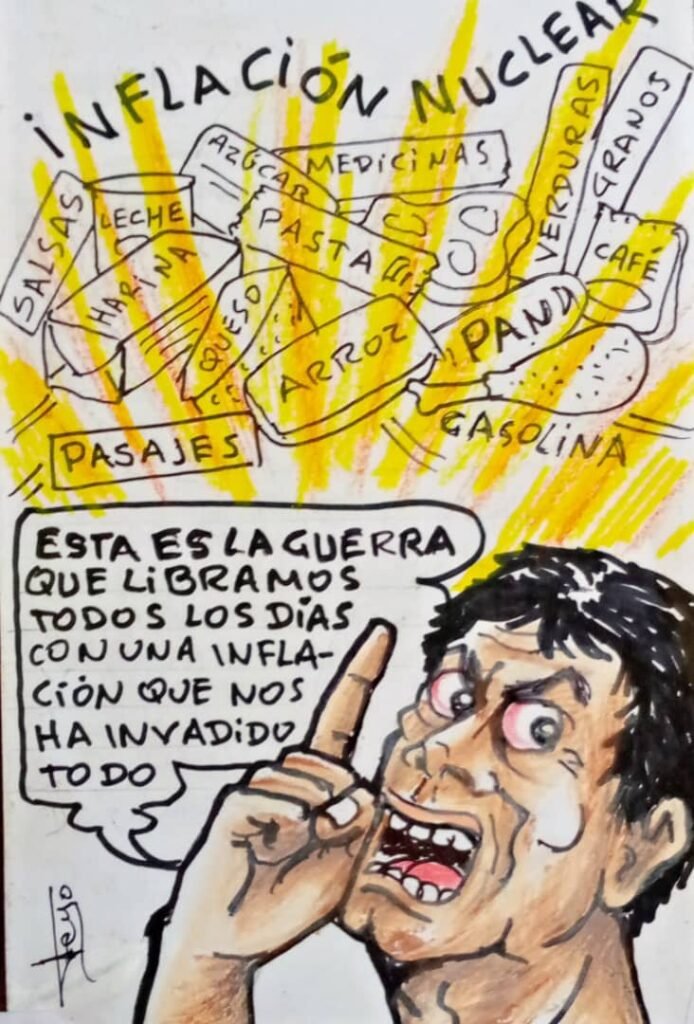 INFLACIÓN NUCLEAR
AZÚCAR
MEDICINAS
VERDURAS
GRANOS
SALSAS
LECHE
HARINA
PASTA
CAFÉ
QUESO
ARROZ
PAN
GASOLINA
PASAJES
ESTA ES LA GUERRA
QUE LIBRAMOS
TODOS LOS DÍAS
CON UNA INFLA-
CIÓN QUE NOS
HA INVADIDO
TODO